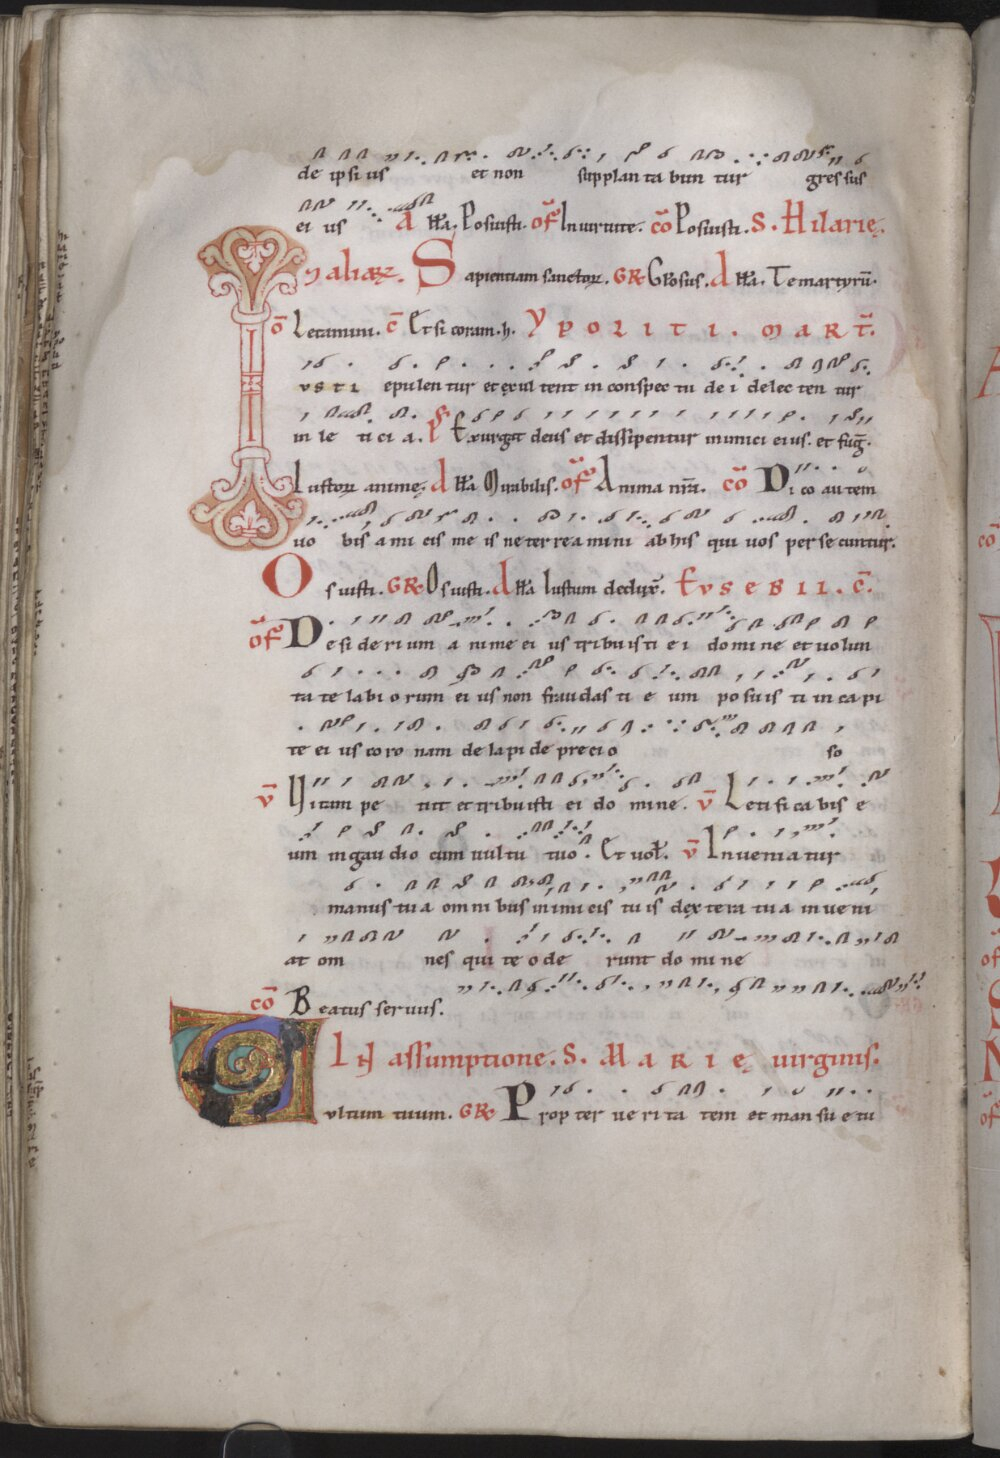 de ipsi us et non supplan ta bun tur gres sus
ei us A lła. Posuisti. of In uirtute. co Posuisti. S. Hilarię.
⁊ aliaꝝ. Sapientiam sanctoꝝ. GR Głosus. A lła. Te martyrū.
o Letamini. c Et si coram. h. YPOLITI. MART.
usti epulen tur et exul tent in conspec tu de i delec ten tur
in le ti ci a. Ps Exurgat deus et dissipentur inimici eius. et fug̅.
Iustoꝝ animę. A lła Mirabilis. of Anima nr̄a. co Dico autem
uo bis a mi cis me is ne ter re a mini ab his qui uos per se cuntur.
Osuisti. GR Osuisti. A lła Iustum dedux̄. EVSEBII. C.
of De si de ri um a nime ei us tribuisti e i do mi ne et uolun
ta te labi o rum ei us non fraudas ti e um po suis ti in ca pi
te ei us co ro nam de la pi de preci o so
v Vitam pe tiit et tribuisti ei do mine. v Leti fi ca bis e
um in gau dio cum uultu tuo. Et uoł. v Inuenia tur
manus tu a om ni bus inimi cis tu is dextera tu a in ue ni
at om nes qui te o de runt do mi ne
co Beatus seruus.
IN assumptione. S. MARIĘ uirginis.
Vultum tuum. GR Prop ter ue ri ta tem et man su e tu